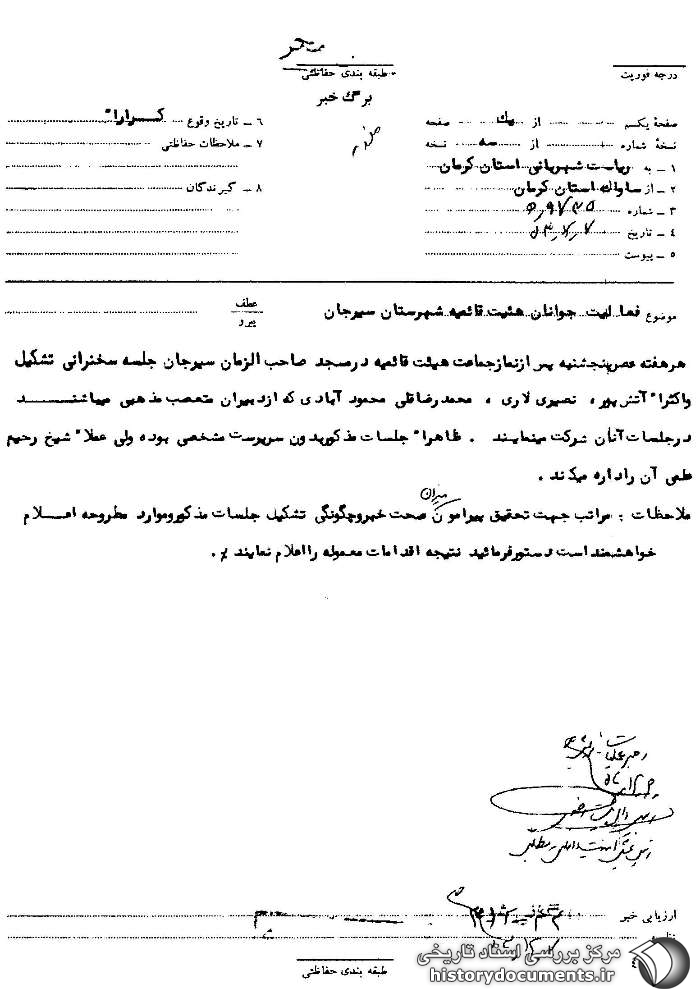 درجه فوریت
طبقه بندی حفاظتی
برگ خبر
صفحهٔ یکم از یک صفحه
نسخهٔ شماره از سه نسخه
۱ - به ریاست شهربانی استان کرمان
۲ - از ساواک استان کرمان
۳ - شماره
۴ - تاریخ ۵۴٫۷٫۷
۵ - پیوست
۶ - تاریخ وقوع کرارا"
۷ - ملاحظات حفاظتی
۸ - گیرندگان
موضوع فعالیت جوانان هئیت قائمیه شهرستان سیرجان
عطف
پیرو
هرهفته عصرپنجشنبه پس ازنمازجماعت هیئت قائمیه درمسجد صاحب الزمان سیرجان جلسه سخنرانی تشکیل
واکثرا" آتش پور، نصیری لاری، محمدرضاقلی محمود آبادی که ازدبیران متعصب مذهبی میباشنـــد
درجلسات آنان شرکت مینمایند . ظاهرا" جلسات مذکوربدون سرپرست مشخصی بوده ولی عملا" شیخ رحیم
آن رااداره میکند .
ملاحظات : مراتب جهت تحقیق پیرامون میزان صحت خبروچگونگی تشکیل جلسات مذکوروموارد مطروحه اعـلام
خواهشمنداست دستورفرمائید نتیجه اقدامات معموله رااعلام نمایند
ارزیابی خبر
طبقه بندی حفاظتی
مرکز بررسی اسناد تاریخی
historydocuments.ir